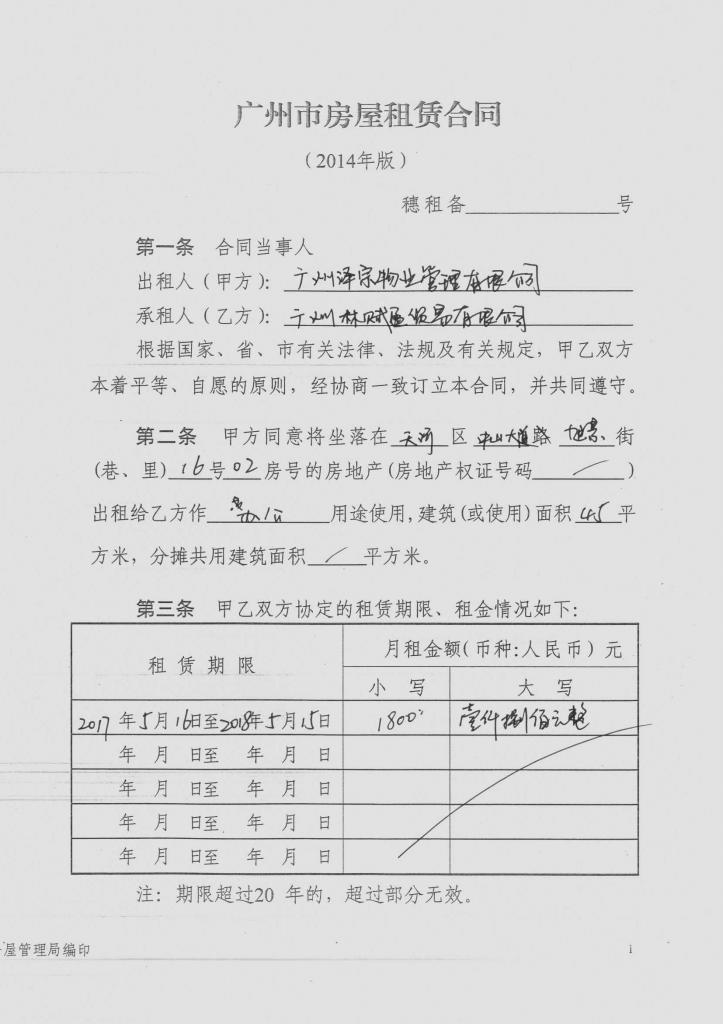 广州市房屋租赁合同
(2014年版)
穗租备 号
第一条 合同当事人
出租人(甲方): 广州泽宗物业管理有限公司
承租人(乙方): 广州林赋通贸易有限公司
根据国家、省、市有关法律、法规及有关规定,甲乙双方
本着平等、自愿的原则,经协商一致订立本合同,并共同遵守。
第二条 甲方同意将坐落在 天河 区 中山大道 路 街
(巷、里) 16 号 02 房号的房地产(房地产权证号码 / )
出租给乙方作 办公 用途使用,建筑(或使用)面积 45 平
方米,分摊共用建筑面积 / 平方米。
第三条 甲乙双方协定的租赁期限、租金情况如下:
租赁期限 月租金额(币种:人民币)元
小写 大写
2017年5月16日至2018年5月15日 1800 壹仟捌佰元整
年 月 日至 年 月 日
年 月 日至 年 月 日
年 月 日至 年 月 日
年 月 日至 年 月 日
注:期限超过20 年的,超过部分无效。
屋管理局编印 1